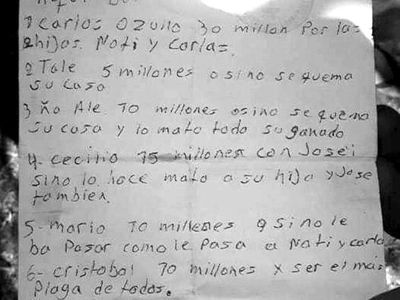 1 Carlos Ozulla 30 millon Por las
2 hijas. Nati y Carlas.
2 Tale 5 millones o sino se quema
su casa
3 Ño Ale 70 millones osino se quema
su casa y lo mato todo su ganado
4- Cecilio 75 millones con Jose i
sino lo hace mato a su hijo y Jose
tambien.
5- mario 70 millenes o si no le
ba Pasar como le Pasa a Nati y carla
6- cristobal 70 millones x ser el mas
Plaga de todos.